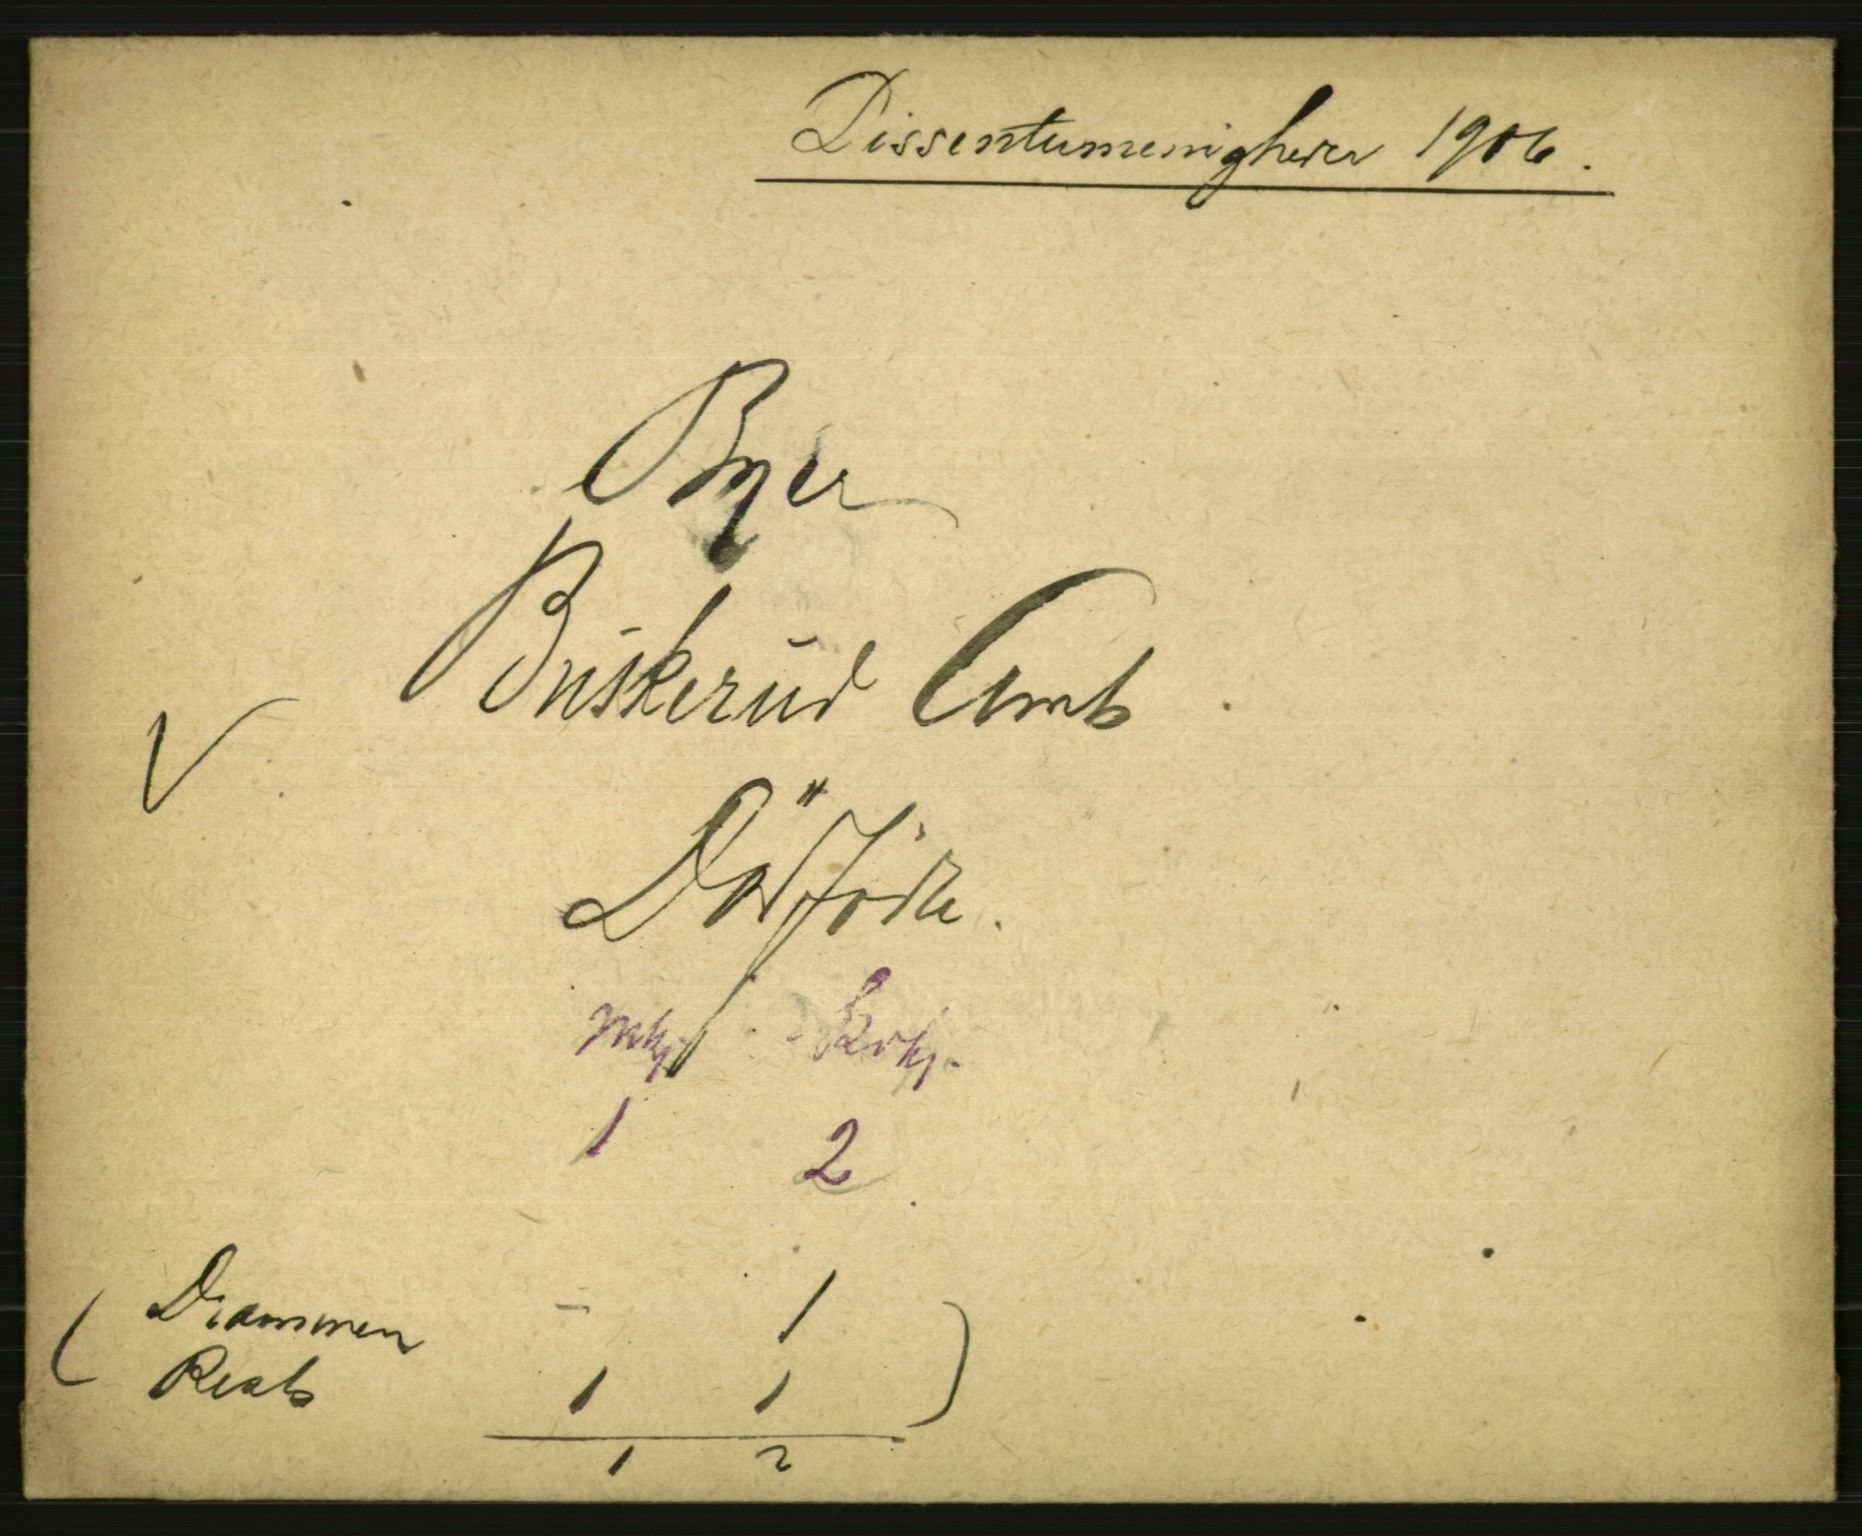 Dissentermenigheder 1906.
Byer
Buskerud Amt
Dödfödte.
mkj. kvkj.
1 2
( Drammen - 1 )
Rest 1 1
1 2